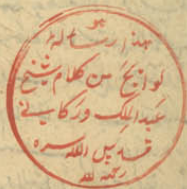 هو
هذا رسالة
لوايح من كلام شيخ
عبد الملك وركاني
قدس الله سره
رحمة لله